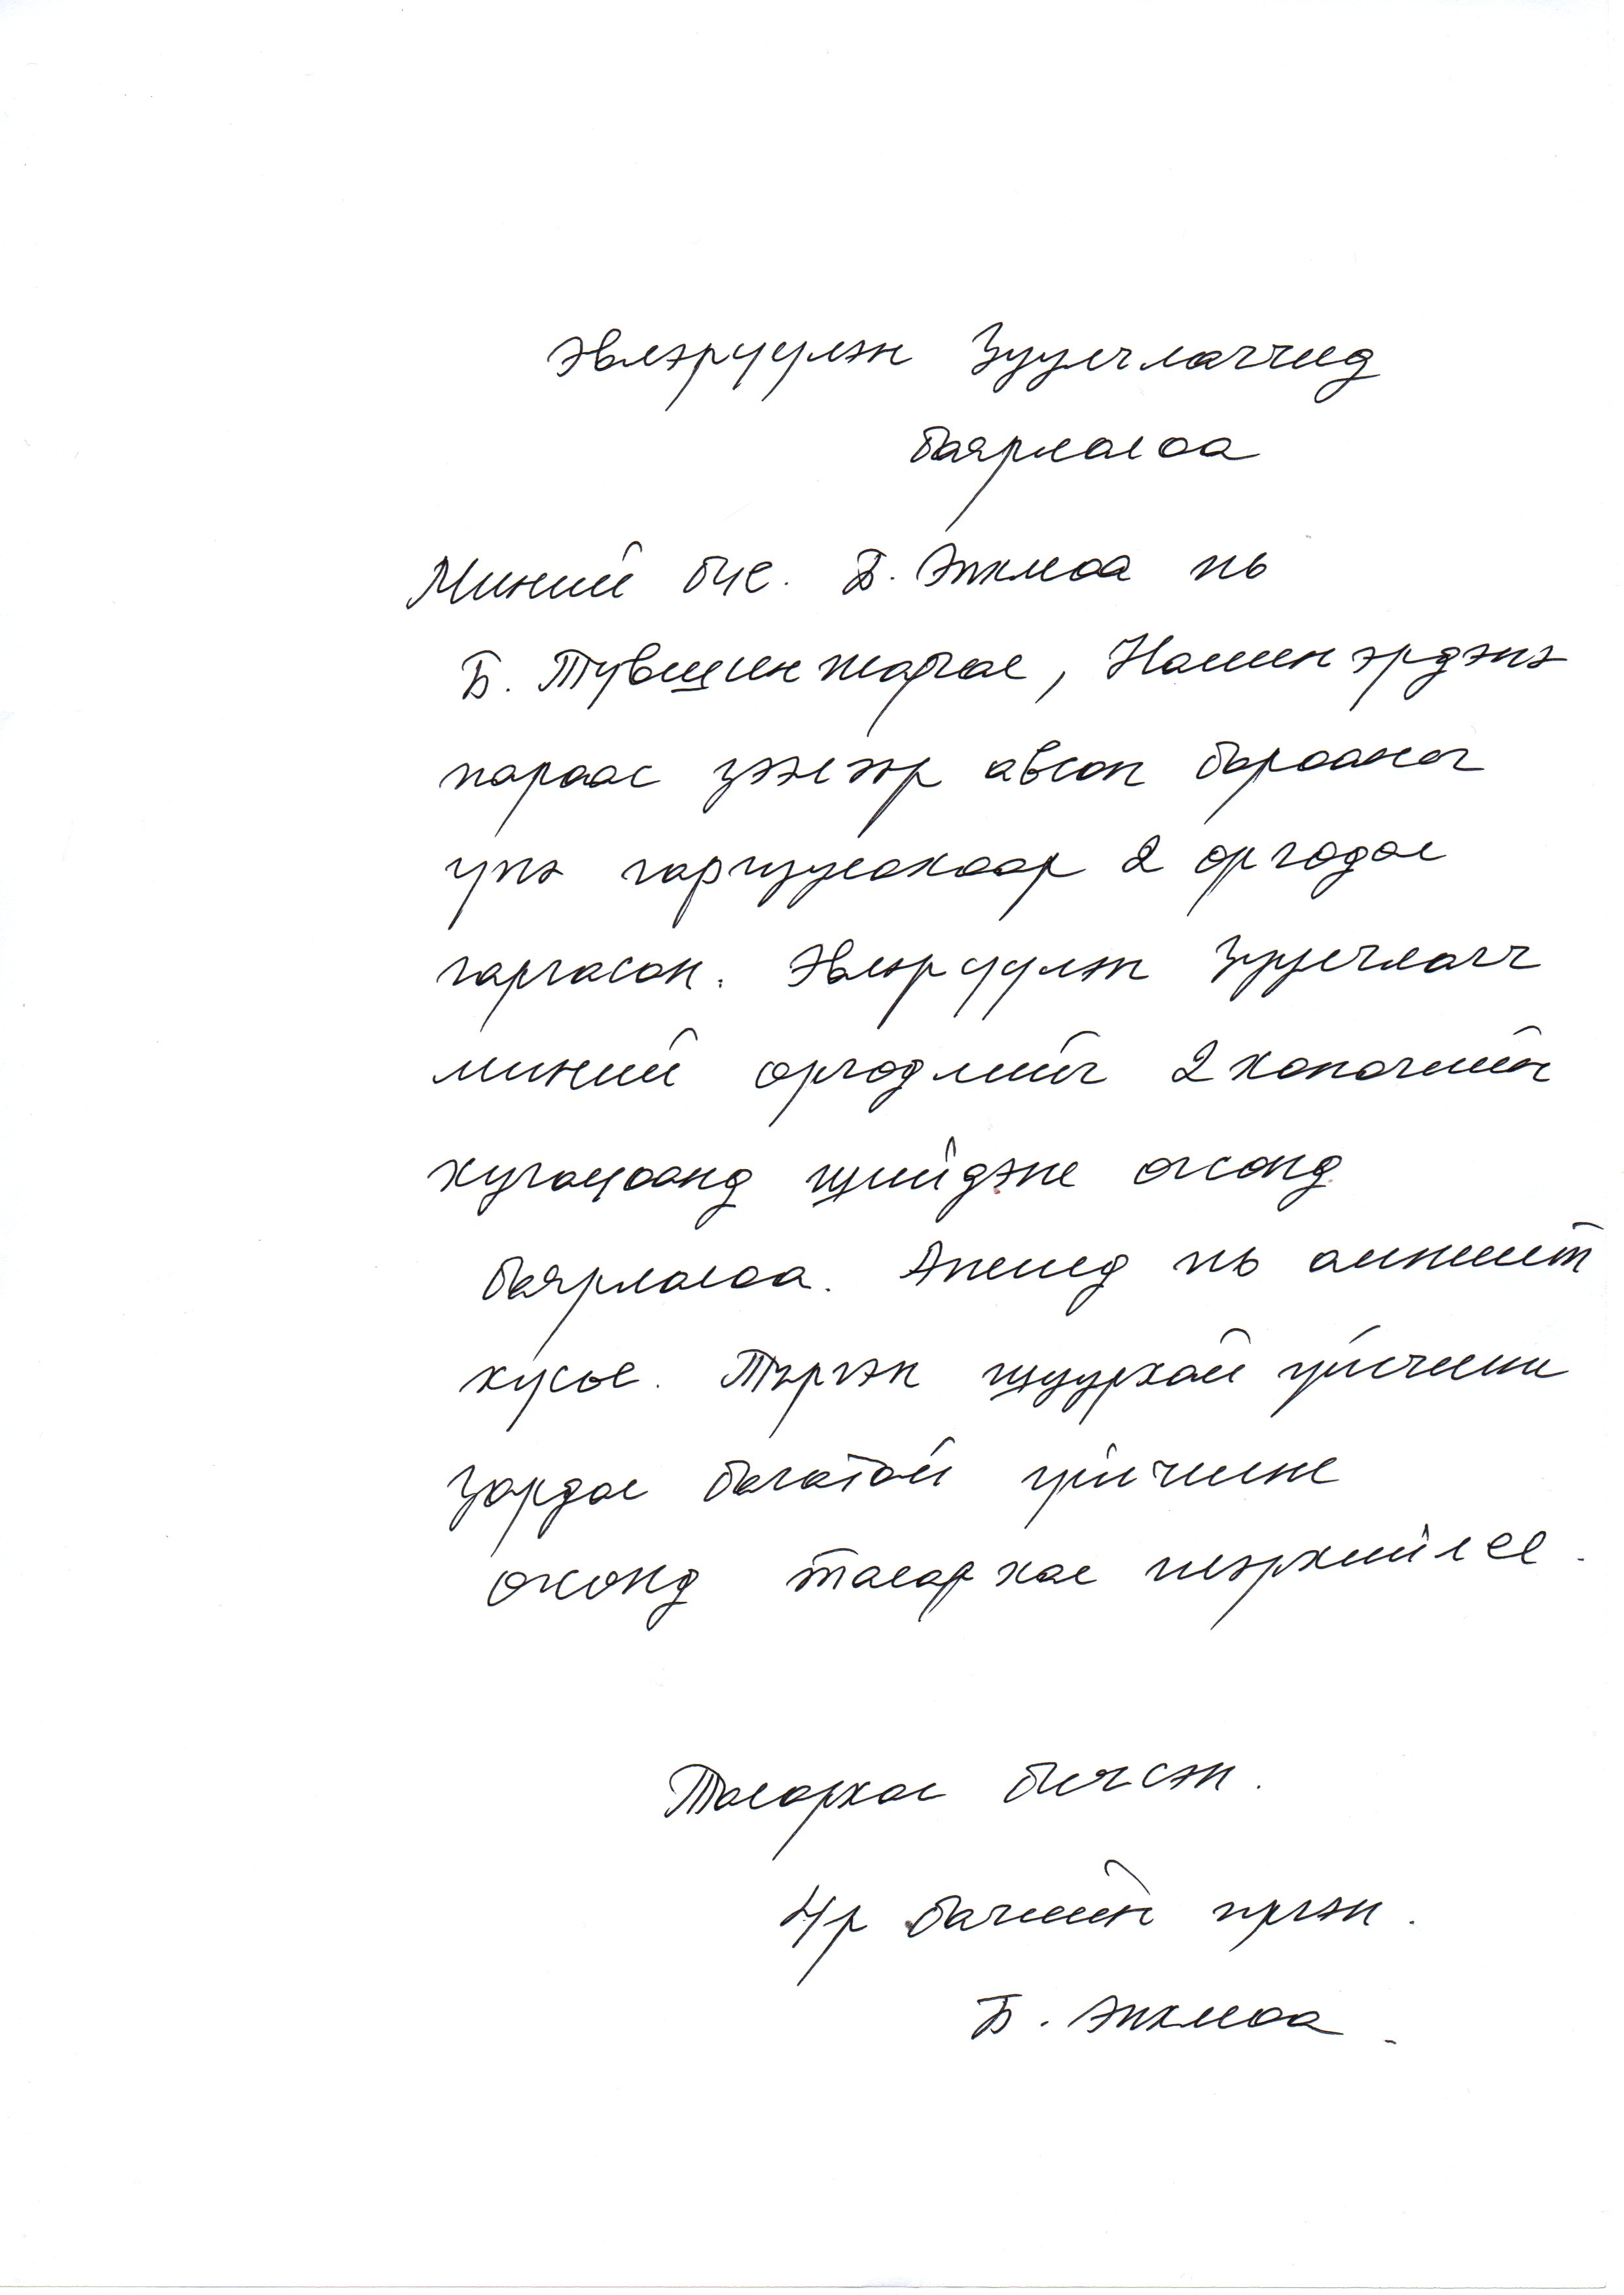 Эвлэрүүлэн Зуучлагчид
баярлалаа
Миний бие. Б. Энхмаа нь
Б. Түвшинжаргал, Номин эрдэнэ
нараас зээлээр авсан барааны
үнэ гаргуулахаар 2 өргөдөл
гаргасан. Эвлэрүүлэн Зуучлагч
миний өргөдлийг 2 хоногийн
хугацаанд шийдэж өгсөнд
баярлалаа. Танид нь амжилт
хүсье. Түргэн шуурхай үйлчилж
Зардал багатай үйлчилж
өгсөнд талархал илэрхийлье.
Талархал бичсэн.
4р багийн иргэн.
Б. Энхмаа